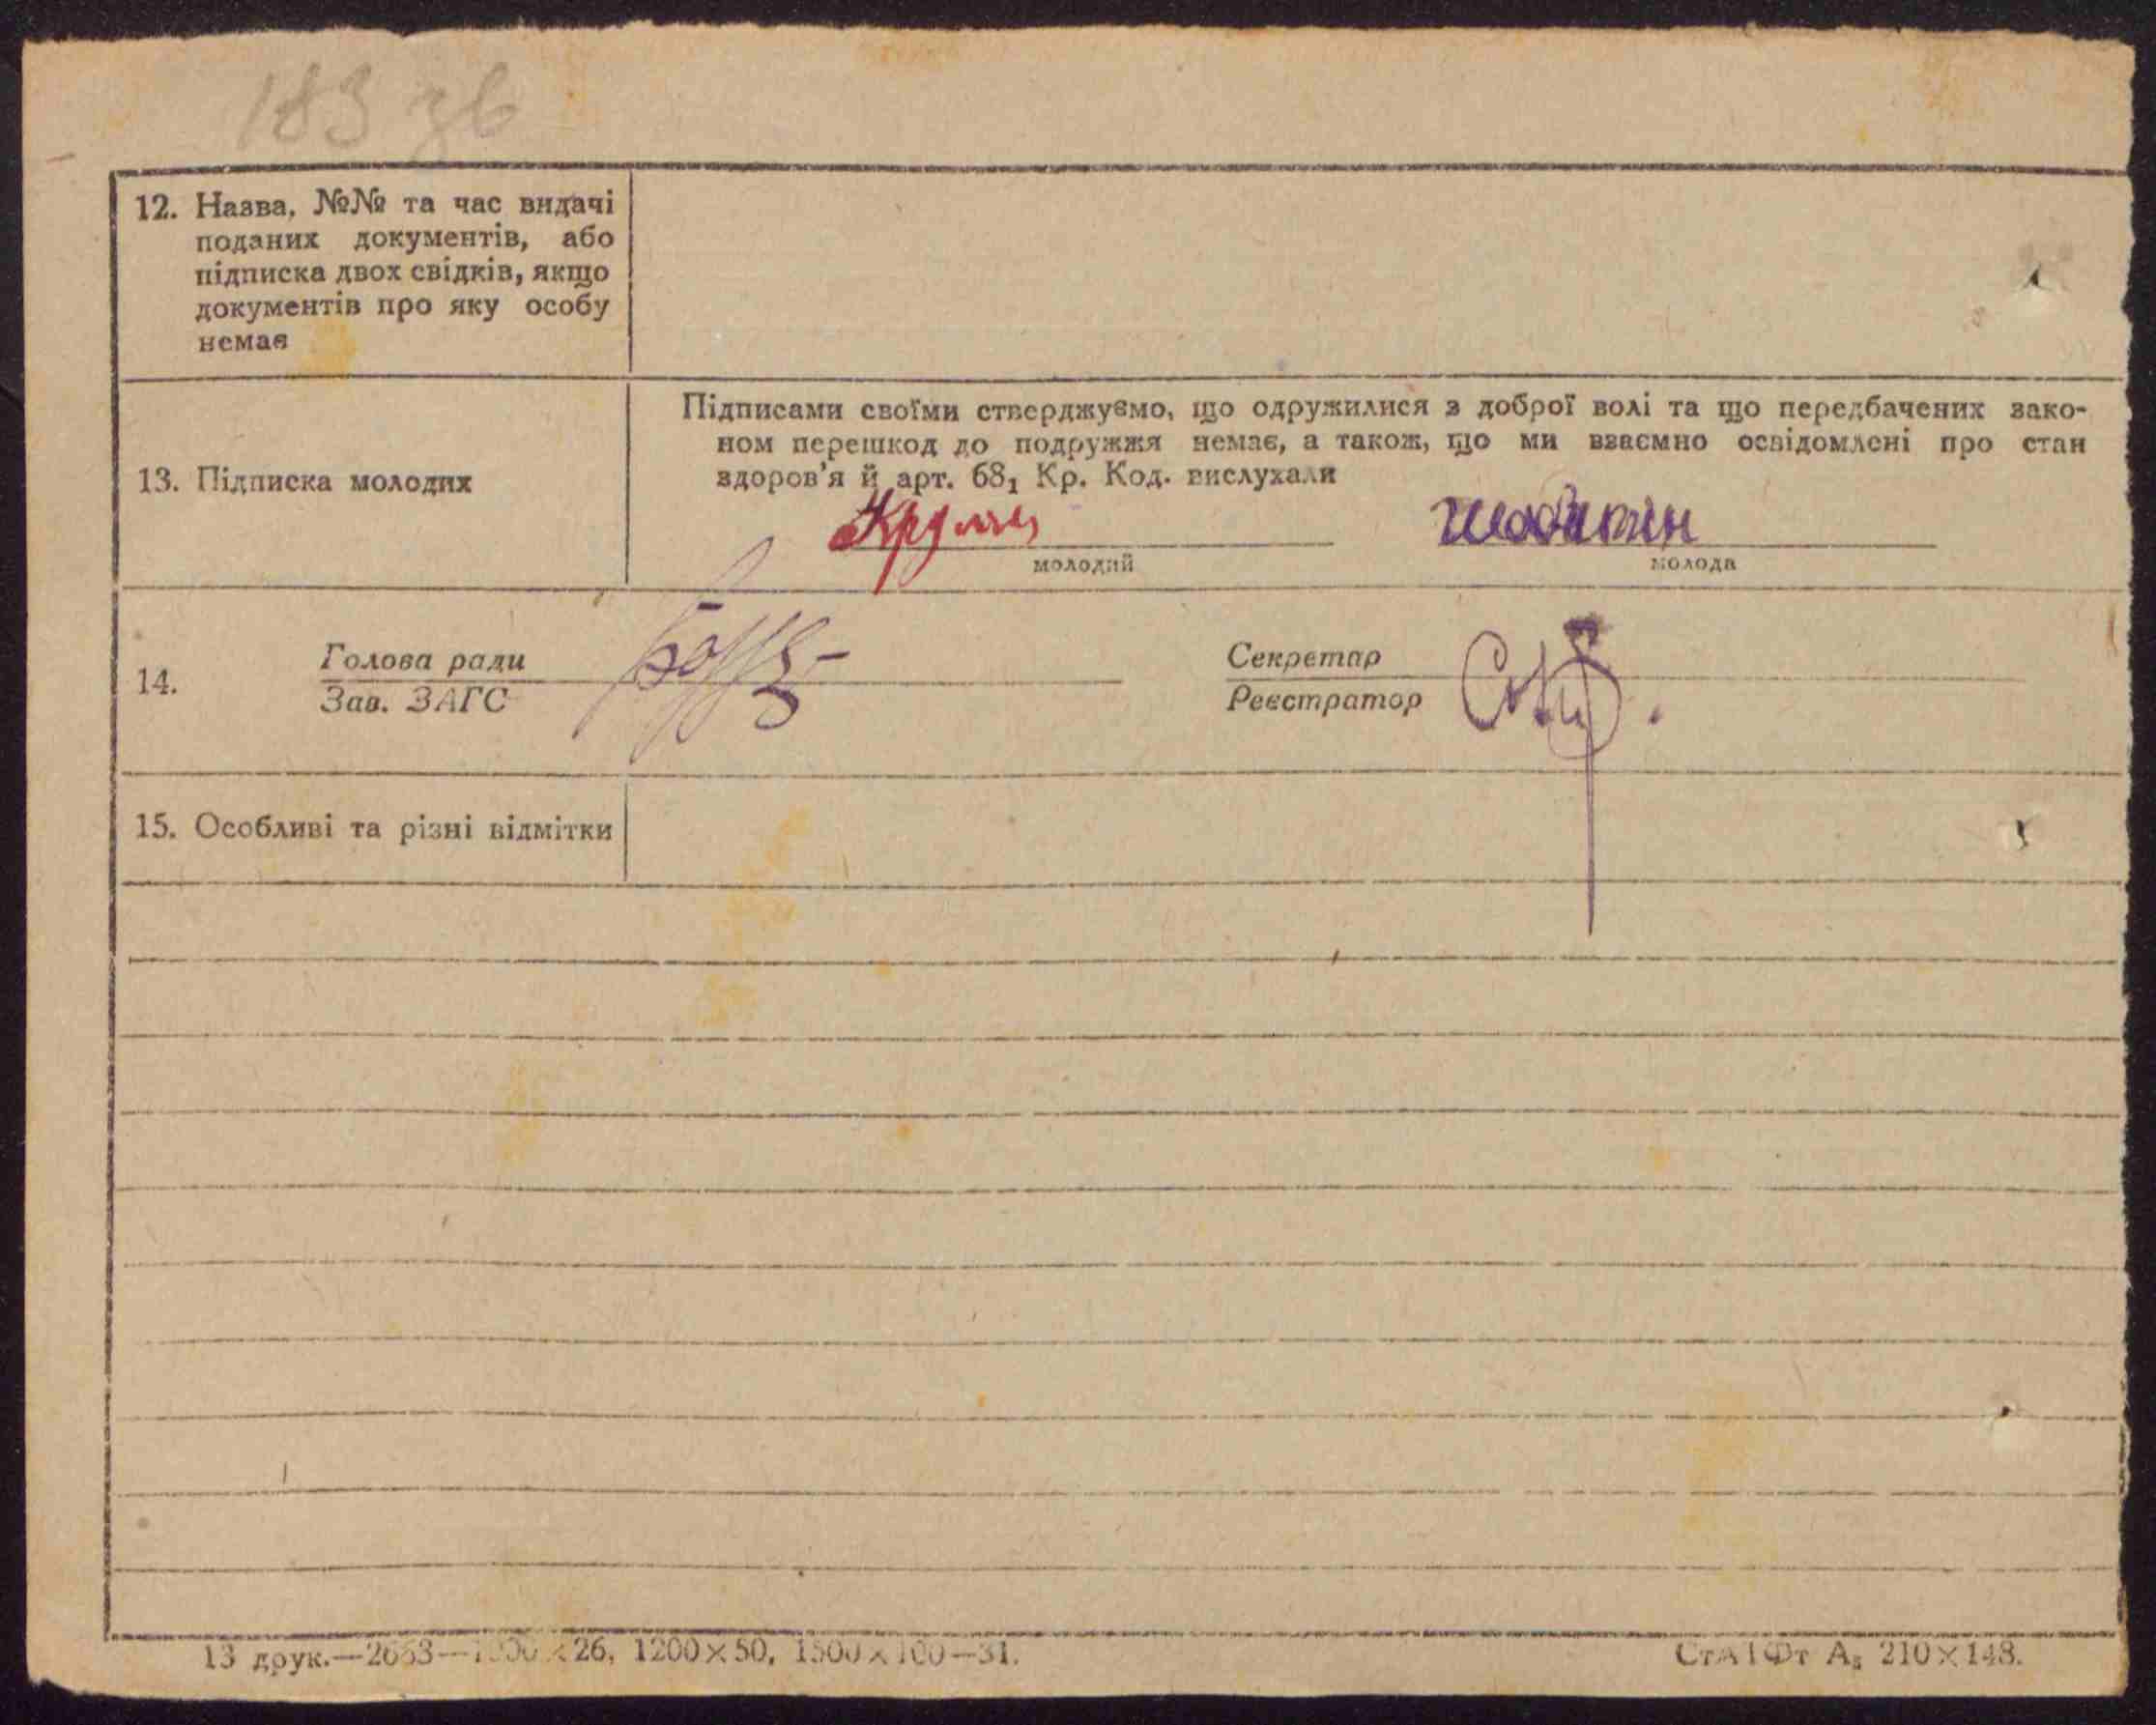 183 зв
12. Назва, №№ та час видачі
поданих документів, або
підписка двох свідків, якщо
документів про яку особу
немає
13. Підписка молодих
Підписами своїми стверджуємо, що одружилися з доброї волі та що передбачених зако-
ном перешкод до подружжя немає, а також, що ми взаємно освідомлені про стан
здоров'я й арт. 68₁ Кр. Код. вислухали
молодий
молода
14.
Голова ради
Зав. ЗАГС
Секретар
Реєстратор
15. Особливі та різні відмітки
13 друк.—2663— 26, 1200×50, 1500×100—31.
А₅ 210×148.